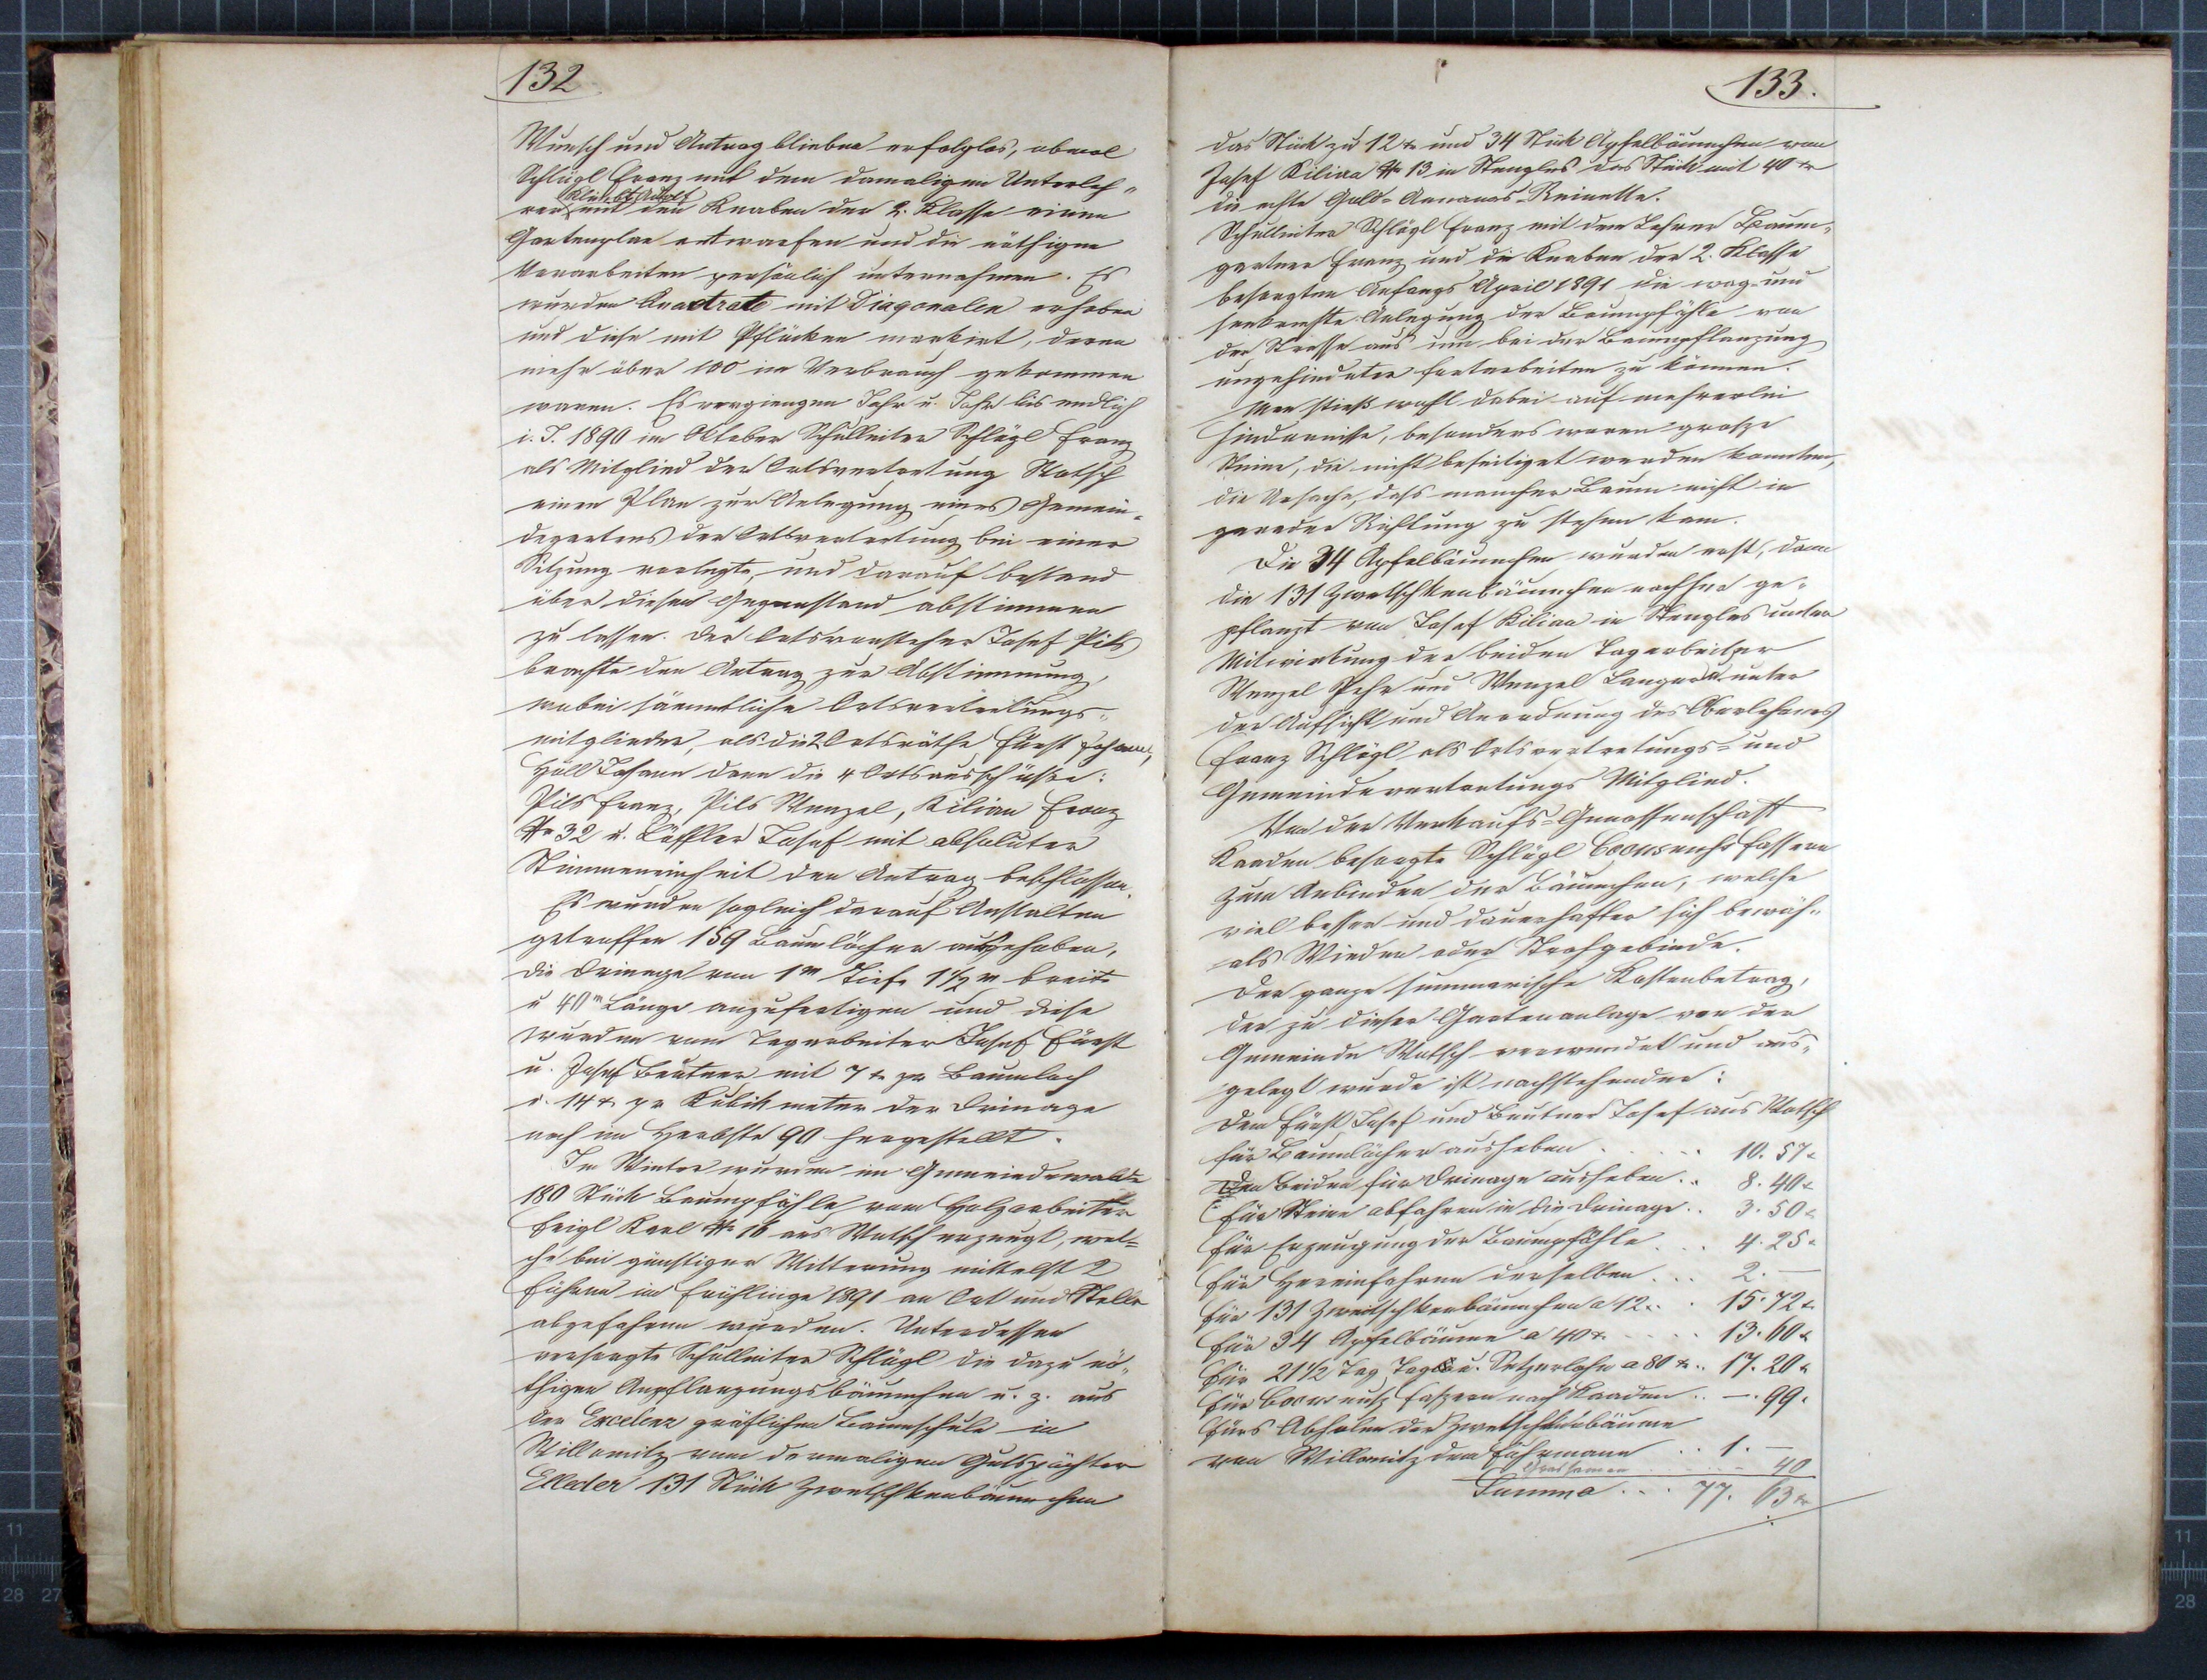 132
Wunsch und Antrag blieben erfolglos, obwol
Schlögl Franz mit dem damaligen Unterleh-
rer und den Knaben der 2. Klasse einen
Gartenplan entworfen und die nöthigen
Vorarbeiten persönlich unternehmen. Es
wurden Quadrate mit Diagonalen erhoben
und diese mit Pflöcken markirt, deren
mehr über 100 im Verbrauch gekommen
waren. Es vergiengen Jahr u. Jahr bis endlich
i. J. 1890 im Oktober Schulleiter Schlögl Franz
als Mitglied der Ortsvertretung Wotsch
einen Plan zur Anlegung eines Gemein-
degartens der Ortsvertretung bei einer
Sitzung vorlegte, und darauf bestand
über diesen Gegenstand abstimmen
zu lassen. Der Ortsvorsteher Josef Pils
brachte den Antrag zur Abstimmung,
wobei sämmtliche Ortsvertretungs-
mitglieder, als die 2 Ortsräthe Fürst Johann,
Höll Johann dann die 4 Ortsausschüsse:
Pils Franz, Pils Wenzel, Kilian Franz
Nr 32 u. Löffler Josef mit absoluter
Stimmeneinheit den Antrag beschlossen.
Es wurden sogleich darauf Anstalten
getroffen 159 Baumlöcher ausgehoben,
die Drinage von 1m Tiefe 1 1/2 m breite
u 40m Länge anzufertigen und diese
wurden vom Tagarbeiter Josef Fürst
u. Josef Beutner mit 7 kr pr Baumloch
u. 14 kr pr Kubikmeter der Drinage
noch im Herbste 90 hergestellt.
Im Winter wurden im Gemeindewalde
180 Stück Baumpfähle vom Holzarbeiter
Feigl Karl Nr 16 aus Wotsch erzeugt, wel-
che bei günstiger Witterung mittelst 2
Fuhren im Frühlinge 1891 an Ort und Stelle
abgefahren wurden. Unterdessen
versorgte Schulleiter Schlögl die dazu nö-
thigen Anpflanzungsbäumchen u. z. aus
der Excelenz gräflichen Baumschule in
Willomitz vom dermaligen Gutspächter
Elleder 131 Stück Zwetschkenbäumchen
133.
das Stück zu 12 kr und 34 Stück Apfelbäumchen von
Josef Kilian Nr 13 in Stengles das Stück mit 40 kr
die echte Gold-Ananas-Reinette.
Schulleiter Schlögl Franz mit dem Lehrer Baum-
gartner Franz und die Knaben der 2. Klasse
besorgten Anfangs April 1891 die wag- und
senkrechte Anlegung der Baumpfähle von
der Strasse aus um bei der Baumpflanzung
ungehindeter fortarbeiten zu können.
Man stieß wohl dabei auf mehrerlei
Hindernisse, besonders waren große
Steine, die nicht beseitiget werden konnten,
die Ursache, dass mancher Baum nicht in
gerader Richtung zu stehen kam.
Die 34 Apfelbäumchen wurden erst, dann
die 131 Zwetschkenbäumchen nachher ge-
pflanzt von Josef Kilian in Stengles unter
Mitwirkung der beiden Tagarbeiter
Wenzel Pehr und Wenzel Langer u. unter
der Aufsicht und Anordnung des Oberlehrers
Franz Schlögl als Ortsvertretungs- und
Gemeindevertretungs Mitglied.
Von der Verkaufs-Genossenschaft
Kaaden besorgte Schlögl Fassern
zum Anbinden der Bäumchen, welche
viel besser und dauerhafter sich bewäh-
als Wieden oder Strohgebinde.
Der ganze summarische Kostenbetrag,
der zu dieser Gartenanlage von der
Gemeinde Wotsch verwendet und aus-
gelegt wurde ist nachstehender:
Dem Fürst Josef und Beutner Josef aus Wotsch
für Baumlöcher ausheben . . . . 10. 57 kr
Den Beiden für Drinage ausheben . . 8. 40 kr
Für Steine abfahren in die Drinage . . 3. 50 kr
Für Erzeugung der Baumpfähle . . . 4. 25 kr
Für Hereinfahren derselben . . . 2. —
Für 131 Zwetschkenbäumchen a 12 kr . 15. 72 kr
Für 34 Apfelbäume a 40 kr . . . . 13. 60 kr
Für 21 1/2 Tag Tag u. Setzerlohn a 80 kr . . 17. 20 kr
Für Cocusnuß Faßern nach Kaaden . . —. 99.
Fürs Abholen der Zwetschkenbäume
von Willomitz dem Fuhrmann . . 1. —
Grassamen . . . . — 40
Summa . . . 77. 63 kr